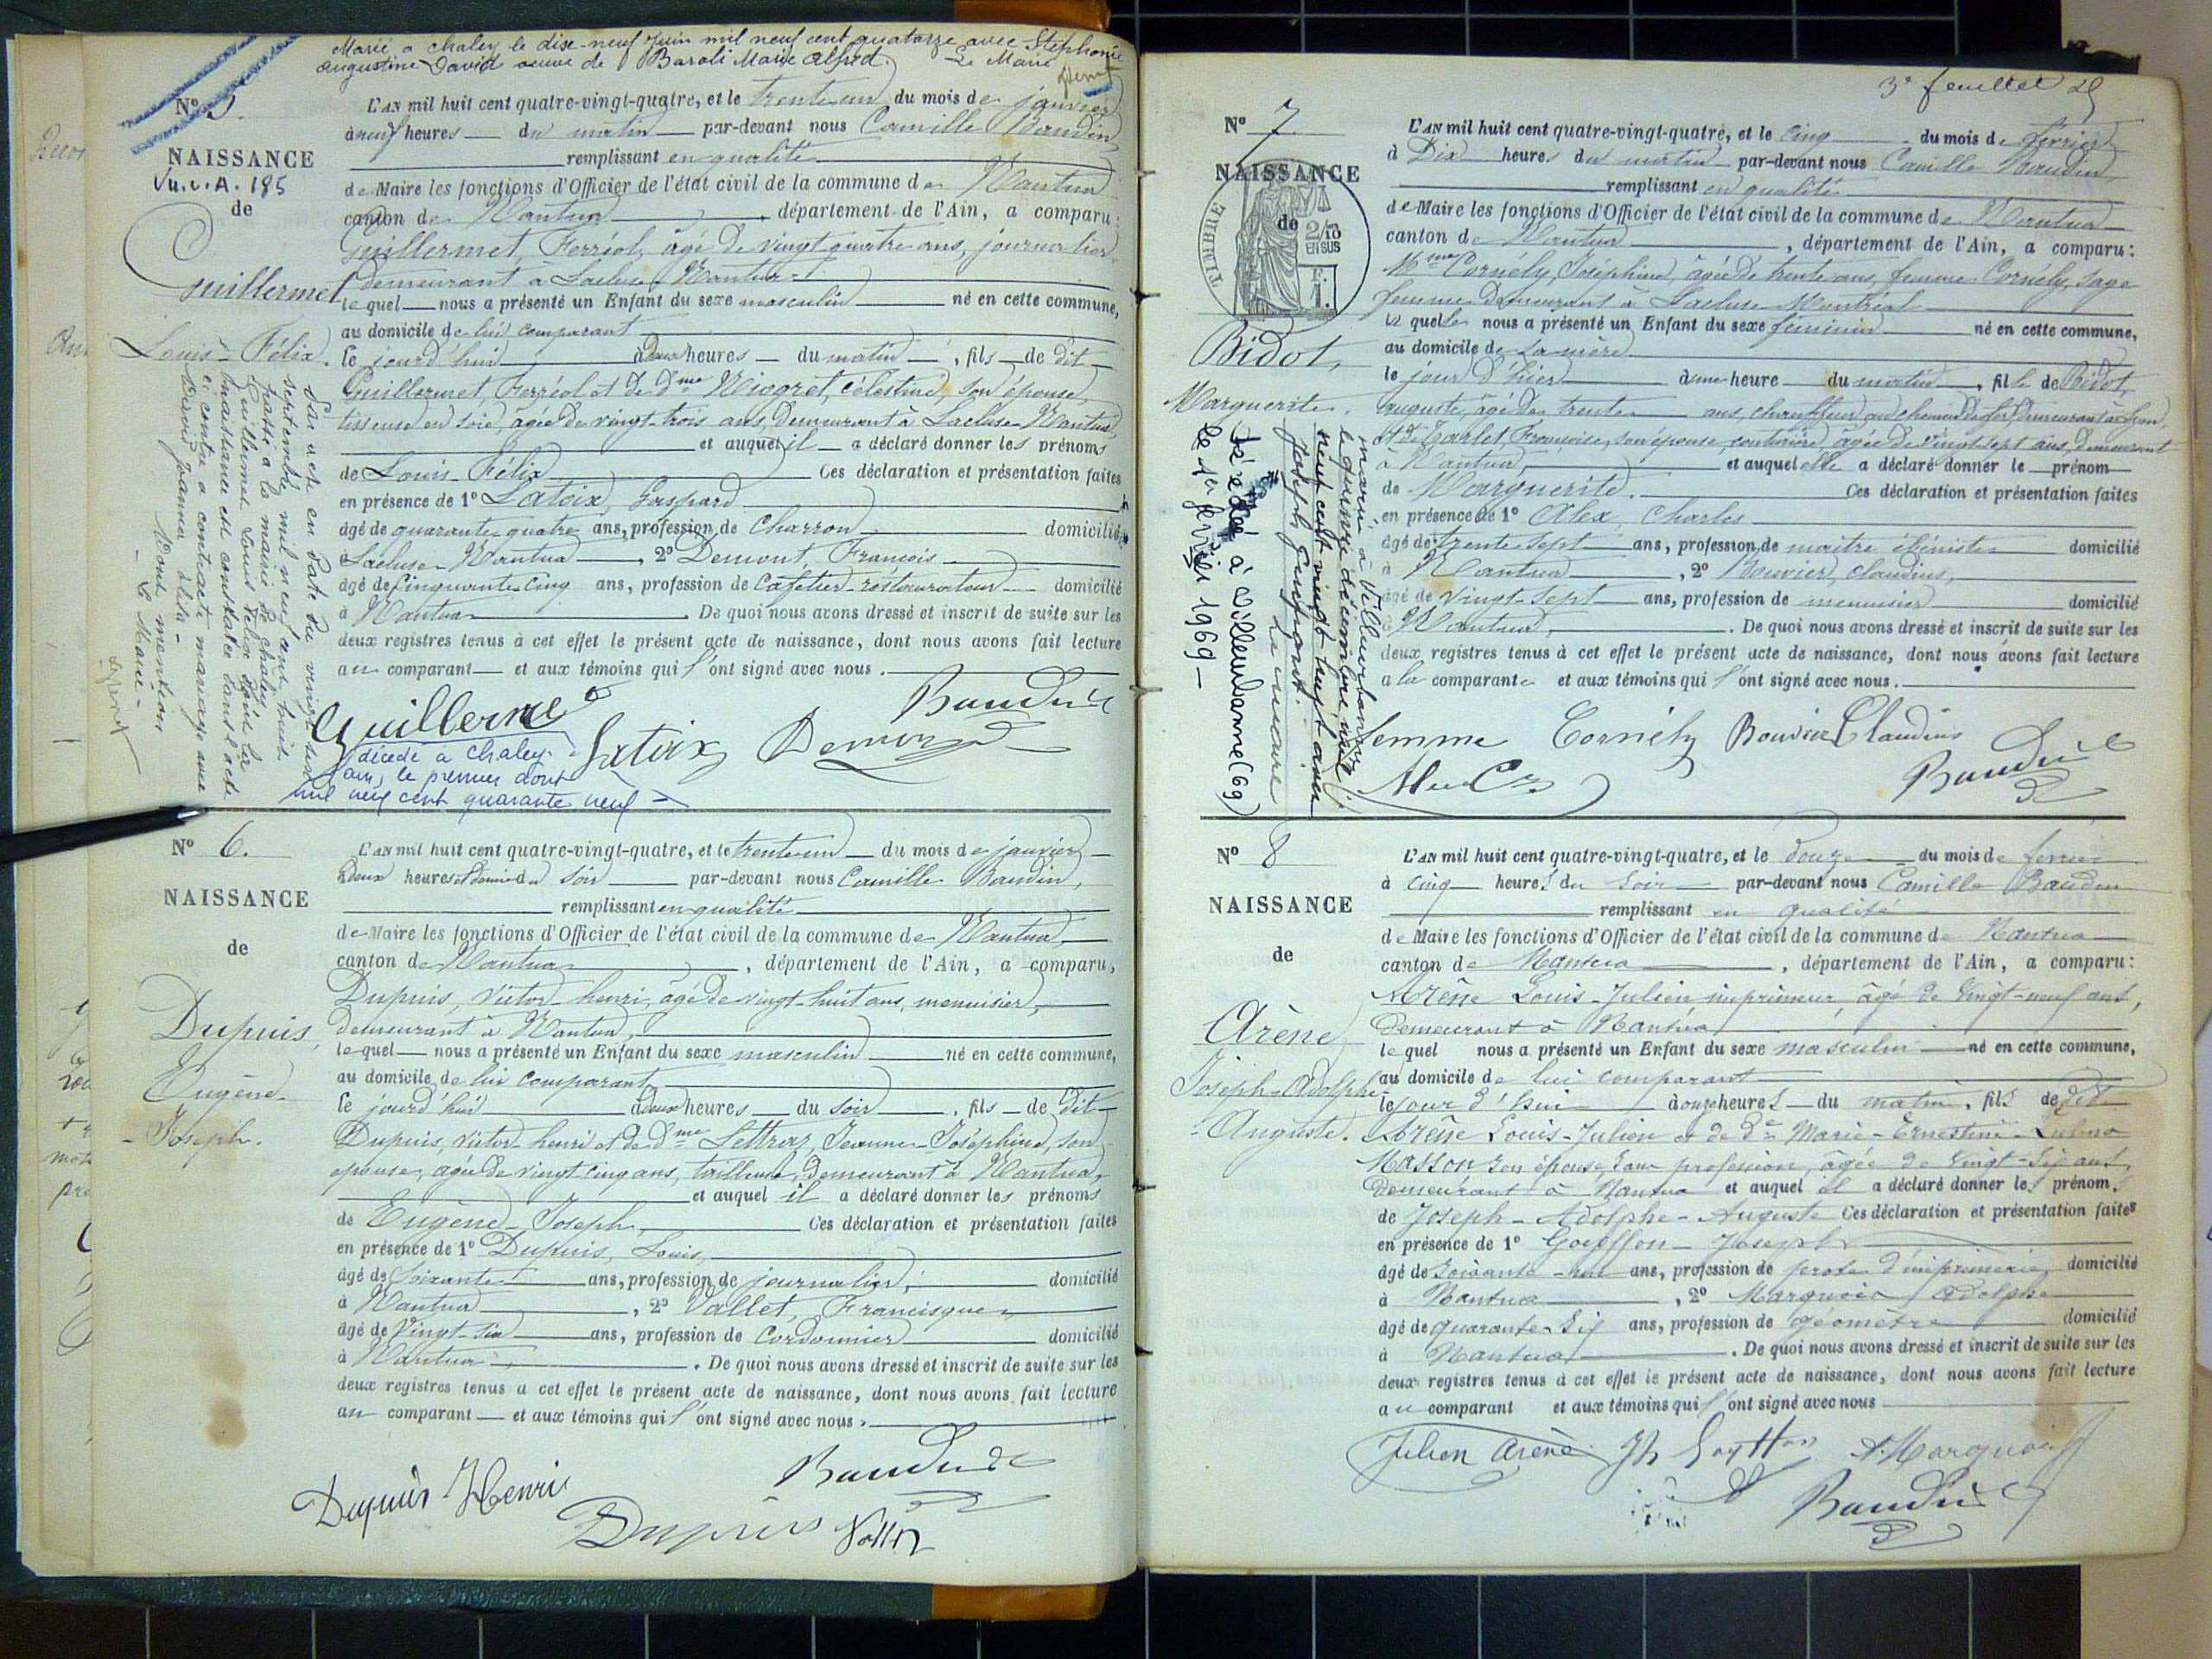 Marié a chaley le dix-neuf Juin mil neuf cent quatorze avec Stéphonie
augustine David veuve de Baroli Marie Alfred. Le Maire
N° 5.
NAISSANCE
Vu. v. A. 185
de
Guillermet
Louis-Félix.
L'AN mil huit cent quatre-vingt-quatre, et le trente-un du mois de janvier
à neuf heures du matin par-devant nous Camille Baudin,
remplissant en qualité
de Maire les fonctions d'Officier de l'état civil de la commune de Nantua
canton de Nantua, département de l'Ain, a comparu:
Guillermet, Ferréol, âgé de vingt quatre ans, journalier
demeurant à Lacluse Nantua
lequel nous a présenté un Enfant du sexe masculin né en cette commune,
au domicile de lui comparant
le jourd'hui à deux heures du matin, fils de dit
Guillermet, Ferréol et de dme Niogret, Célestine, son épouse,
tisseuse en soie, âgée de vingt-trois ans, Demeurant à Lacluse-Nantua,
et auquel il a déclaré donner les prénoms
de Louis-Félix Ces déclaration et présentation faites
en présence de 1° Latoix, Gaspard
âgé de quarante quatre ans, profession de Charron domicilié
à Lacluse-Nantua, 2° Demont, François
âgé de Cinquante-Cinq ans, profession de Cafetier-restaurateur domicilié
à Nantua De quoi nous avons dressé et inscrit de suite sur les
deux registres tenus à cet effet le présent acte de naissance, dont nous avons fait lecture
au comparant et aux témoins qui l'ont signé avec nous.
Par acte en date du vingt six
septembre mil neuf cent huit
passé à la mairie de chaley
Guillermet Louis Félix dont la
naissance est constatée dans l'acte
ci contre a contracté mariage avec
David Joanna Elisa -
Dont mention
- Le Maire -
Guillermet
Latoix Demont
Baudin
décédé a Chaley
ain, le premier août
mil neuf cent quarante neuf =
N° 6.
NAISSANCE
de
Dupuis,
Eugène-
-Joseph.
L'AN mil huit cent quatre-vingt-quatre, et le trente-un du mois de janvier
à deux heures et demie du soir par-devant nous Camille Baudin,
remplissant en qualité
de Maire les fonctions d'Officier de l'état civil de la commune de Nantua
canton de Nantua, département de l'Ain, a comparu,
Dupuis, Victor-henri, âgé de vingt-huit ans, menuisier,
demeurant à Nantua,
lequel nous a présenté un Enfant du sexe masculin né en cette commune,
au domicile de lui comparant
le jourd'hui à deux heures du soir, fils de dit
Dupuis, Victor-henri et de dme Lettraz, Jeanne-Joséphine, son
épouse, âgée de vingt cinq ans, tailleuse, demeurant à Nantua,
et auquel il a déclaré donner les prénoms
de Eugène-Joseph, Ces déclaration et présentation faites
en présence de 1° Dupuis, Louis,
âgé de soixante ans, profession de journalier, domicilié
à Nantua, 2° Vallet, Francisque,
âgé de Vingt-six ans, profession de Cordonnier domicilié
à Nantua, De quoi nous avons dressé et inscrit de suite sur les
deux registres tenus a cet effet le présent acte de naissance, dont nous avons fait lecture
au comparant et aux témoins qui l'ont signé avec nous.
Dupuis Henri
Baudin
Dupuis
3e feuillet
N° 7
NAISSANCE
de
TIMBRE
2/10
EN SUS
F.
1.
Bidot,
Marguerite.
L'AN mil huit cent quatre-vingt-quatre, et le cinq du mois de février
à Dix heures du matin par-devant nous Camille Baudin
remplissant en qualité
de Maire les fonctions d'Officier de l'état civil de la commune de Nantua
canton de Nantua, département de l'Ain, a comparu:
Mme Cornély, Joséphine, âgée de trente ans, femme Cornély, sage
femme demeurant à Lacluse-Montréal
la quelle nous a présenté un Enfant du sexe féminin né en cette commune,
au domicile de sa mère
le jour d'hier à une heure du matin, fille de Bidot,
Auguste, âgé de trente ans, chauffeur au chemin de fer, demeurant à Lyon
et de Carlet, Françoise, son épouse, couturière, âgée de vingt sept ans, demeurant
à Nantua, et auquel elle a déclaré donner le prénom
de Marguerite. Ces déclaration et présentation faites
en présence de 1° Alex, Charles
âgé de trente sept ans, profession de maître ébéniste domicilié
à Nantua, 2° Bouvier, Claudius,
âgé de vingt-sept ans, profession de menuisier domicilié
à Nantua, De quoi nous avons dressé et inscrit de suite sur les
deux registres tenus à cet effet le présent acte de naissance, dont nous avons fait lecture
a la comparante et aux témoins qui l'ont signé avec nous.
marié à Villeurbanne
le quinze décembre mil
neuf cent vingt huit avec
Joseph
Le maire
Décédée à Villeurbanne (69)
le 1er février 1969 -
femme Cornély Bouvier Claudius
Alex Ch
Baudin
N° 8
NAISSANCE
de
Arène
Joseph-Adolphe
-Auguste.
L'AN mil huit cent quatre-vingt-quatre, et le douze du mois de fevrier
à cinq heures du soir par-devant nous Camille Baudin
remplissant en qualité
de Maire les fonctions d'Officier de l'état civil de la commune de Nantua
canton de Nantua, département de l'Ain, a comparu:
Arène Louis-Julien imprimeur, âgé de vingt-neuf ans,
demeurant à Nantua
lequel nous a présenté un Enfant du sexe masculin né en cette commune,
au domicile de lui comparant
le jour d'hui à onze heures du matin, fils de dit
Arène Louis-Julien et de De Marie-Ernestine
Masson son épouse, sans profession, âgée de vingt-six ans,
demeurant à Nantua et auquel il a déclaré donner les prénoms
de Joseph-Adolphe-Auguste Ces déclaration et présentation faites
en présence de 1° Goyffon Joseph
âgé de soixante-un ans, profession de prote d'imprimerie, domicilié
à Nantua, 2° Marquois Adolphe
âgé de quarante-six ans, profession de géomètre domicilié
à Nantua. De quoi nous avons dressé et inscrit de suite sur les
deux registres tenus à cet effet le présent acte de naissance, dont nous avons fait lecture
au comparant et aux témoins qui l'ont signé avec nous
Julien Arène Jh Goyffon A. Marquois
Baudin